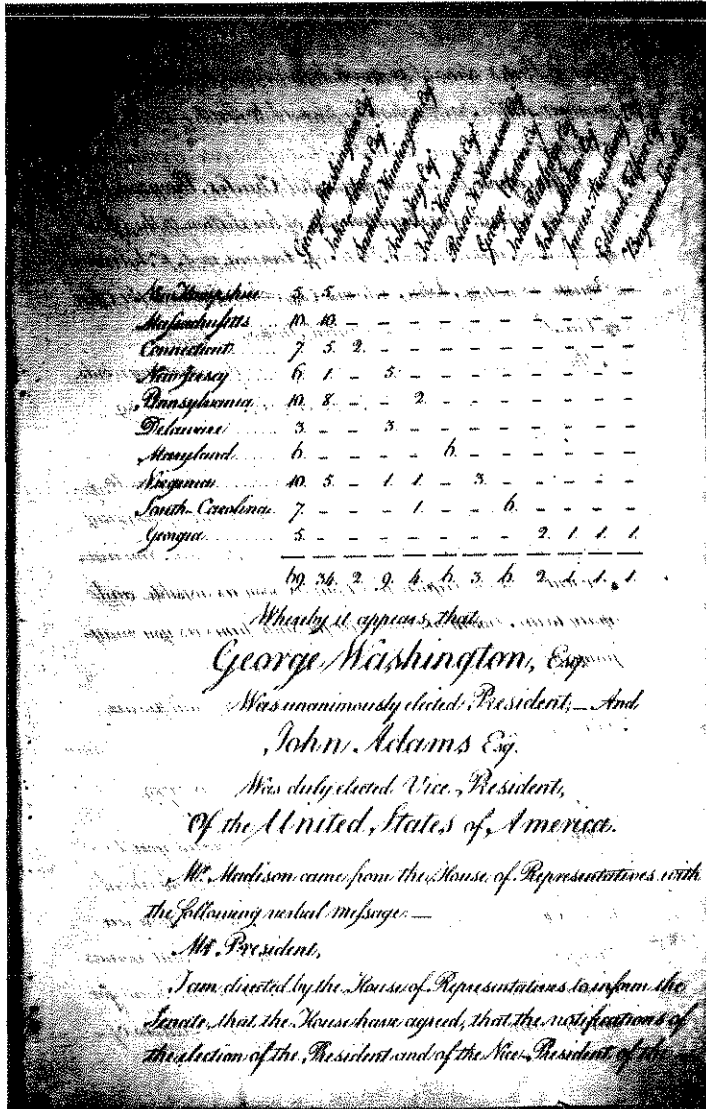 George Washington Esqr
John Adams Esqr
Samuel Huntington Esqr
John Jay Esqr
John Hancock Esqr
Robert H. Harrison Esqr
George Clinton Esqr
John Rutledge Esqr
John Milton Esqr
James Armstrong Esqr
Edward Telfair Esqr
Benjamin Lincoln
New Hampshire 5. 5. - - - - - - - - -
Massachusetts 10. 10. - - - - - - - - - -
Connecticut 7. 5. 2. - - - - - - - - -
New Jersey 6. 1. - 5. - - - - - - - -
Pennsylvania 10. 8. - - 2. - - - - - - -
Delaware 3. - - 3. - - - - - - - -
Maryland 6. - - - - 6. - - - - - -
Virginia 10. 5. - 1. 1. - 3. - - - - -
South-Carolina 7. - - - 1. - - 6. - - - -
Georgia 5. - - - - - - - 2. 1. 1. 1.
69. 34. 2. 9. 4. 6. 3. 6. 2. 1. 1. 1.
Whereby it appears, that
George Washington, Esqr.
Was unanimously elected President,—And
John Adams Esq.
Was duly elected Vice-President,
Of the United States of America.
Mr. Madison came from the House of Representatives with
the following verbal message:—
Mr. President,
I am directed by the House of Representatives to inform the
Senate, that the House have agreed, that the notifications of
the election of the President and of the Vice-President of the